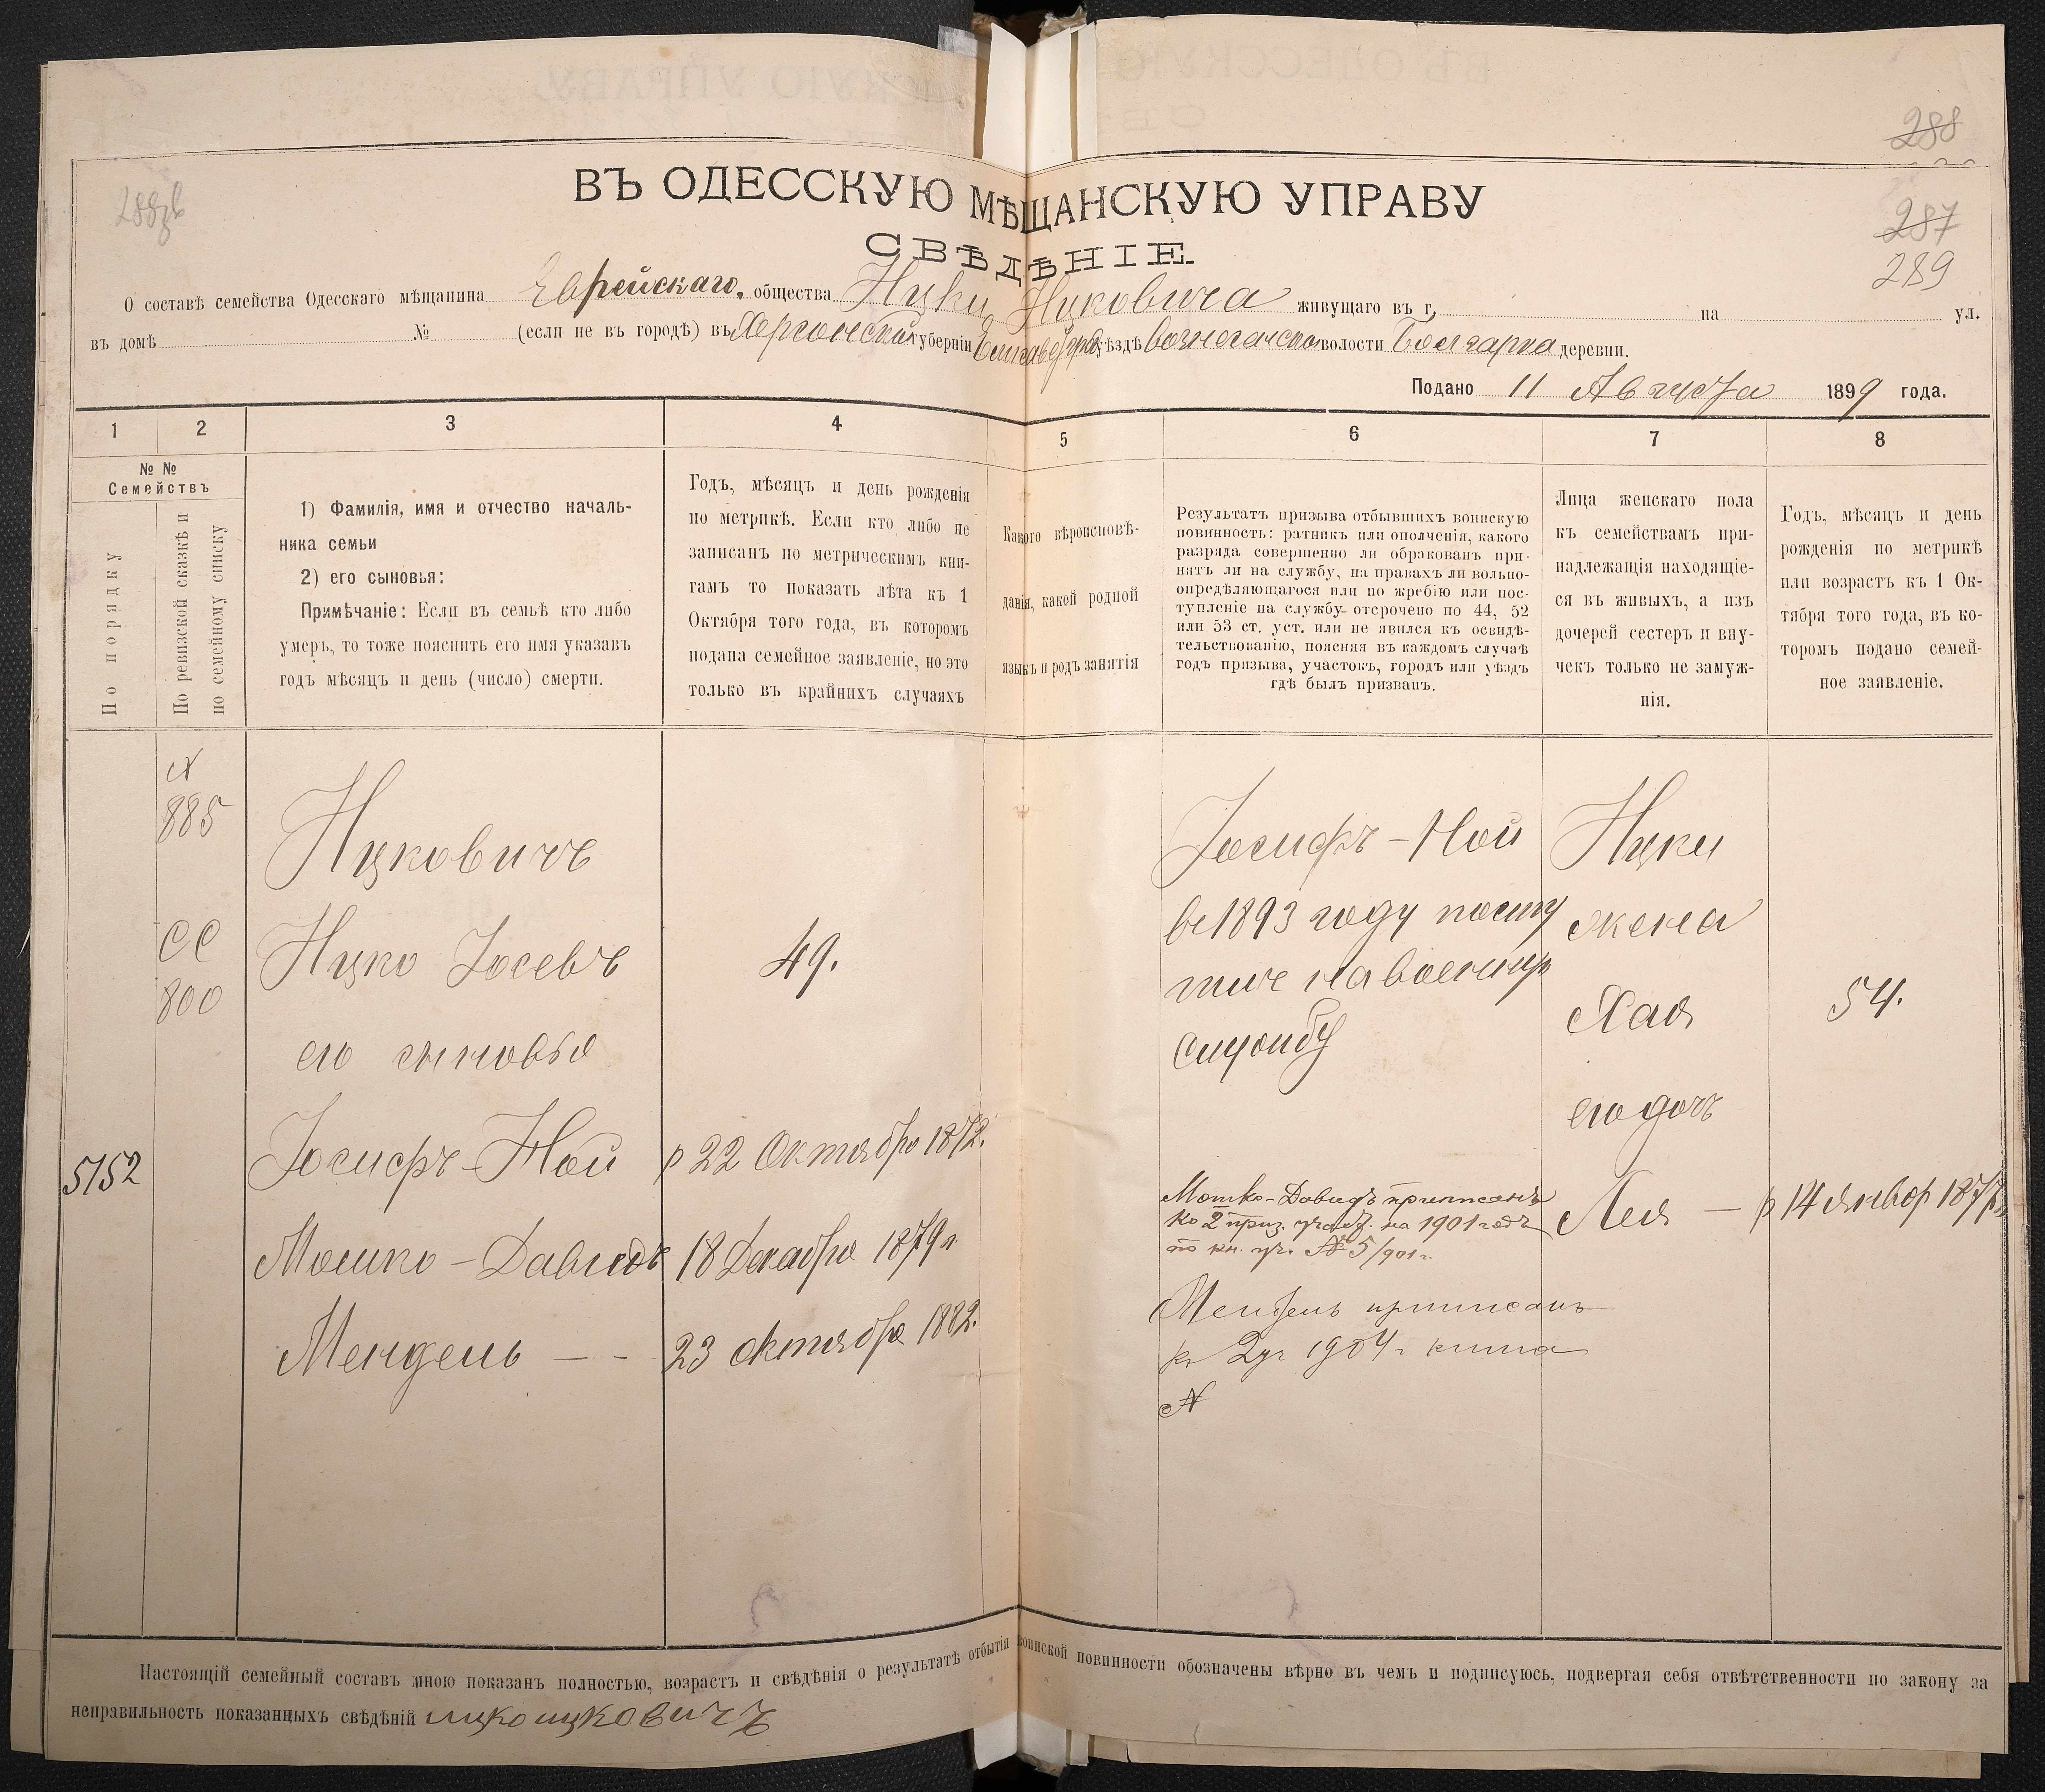 288
ВЪ ОДЕССКУЮ МѢЩАНСКУЮ УПРАВУ
287
СВѢДѢНІЕ.
289
О составѣ семейства Одесскаго мѣщанина Еврейскаго общества Ицки Ицковича живущаго въ г. на ул.
въ домѣ № (если не въ городѣ) въ Херсонской губерніи Елисаветград уѣздѣ волости Болгарка деревни.
Подано 11 Августа 1899 года.
1 2 3 4 5 6 7 8
№ №
Семействъ
По порядку
По ревизской сказкѣ и
по семейному списку
1) Фамилія, имя и отчество началь-
ника семьи
2) его сыновья:
Примѣчаніе: Если въ семьѣ кто либо
умеръ, то тоже пояснить его имя указавъ
годъ мѣсяцъ и день (число) смерти.
Годъ, мѣсяцъ и день рожденія
по метрикѣ. Если кто либо не
записанъ по метрическимъ кни-
гамъ то показать лѣта къ 1
Октября того года, въ которомъ
подана семейное заявленіе, но это
только въ крайнихъ случаяхъ
Какого вѣроисповѣ-
данія, какой родной
языкъ и родъ занятія
Результатъ призыва отбывшихъ воинскую
повинность: ратникъ или ополченія, какого
разряда совершенно ли обракованъ при-
нятъ ли на службу, на правахъ ли вольно-
опредѣляющагося или по жребію или пос-
тупленіе на службу отсрочено по 44, 52
или 53 ст. уст. или не явился къ освидѣ-
тельствованію, поясняя въ каждомъ случаѣ
годъ призыва, участокъ, городъ или уѣздъ
гдѣ былъ призванъ.
Лица женскаго пола
къ семействамъ при-
надлежащія находящіе-
ся въ живыхъ, а изъ
дочерей сестеръ и вну-
чекъ только не замуж-
нія.
Годъ, мѣсяцъ и день
рожденія по метрикѣ
или возрастъ къ 1 Ок-
тября того года, въ ко-
торомъ подано семей-
ное заявленіе.
№
885
СС
800
5152
Ицковичъ
Ицко Іосевъ
его сыновья
Іосифъ-Ной
Мошко-Давидъ
Мендель — -
49.
р 22 Октября 1872.
18 Декабря 1879 г.
23 октября 1882.
Іосифъ-Ной
въ 1893 году посту
пилъ на военную
службу
Мошко-Давидъ приписанъ
ко 2 приз. участ. на 1901 годъ
по кн. уч. № 5/901 г.
Мендель приписанъ
къ 2 уч 1904 г книга
№
Ицки
жена
Хая
его дочь
Лея —
54.
р 14 январ
Настоящій семейный составъ мною показанъ полностью, возрастъ и свѣдѣнія о результатѣ отбытія воинской повинности обозначены вѣрно въ чемъ и подписуюсь, подвергая себя отвѣтственности по закону за
неправильность показанныхъ свѣдѣній ицко ицковичъ